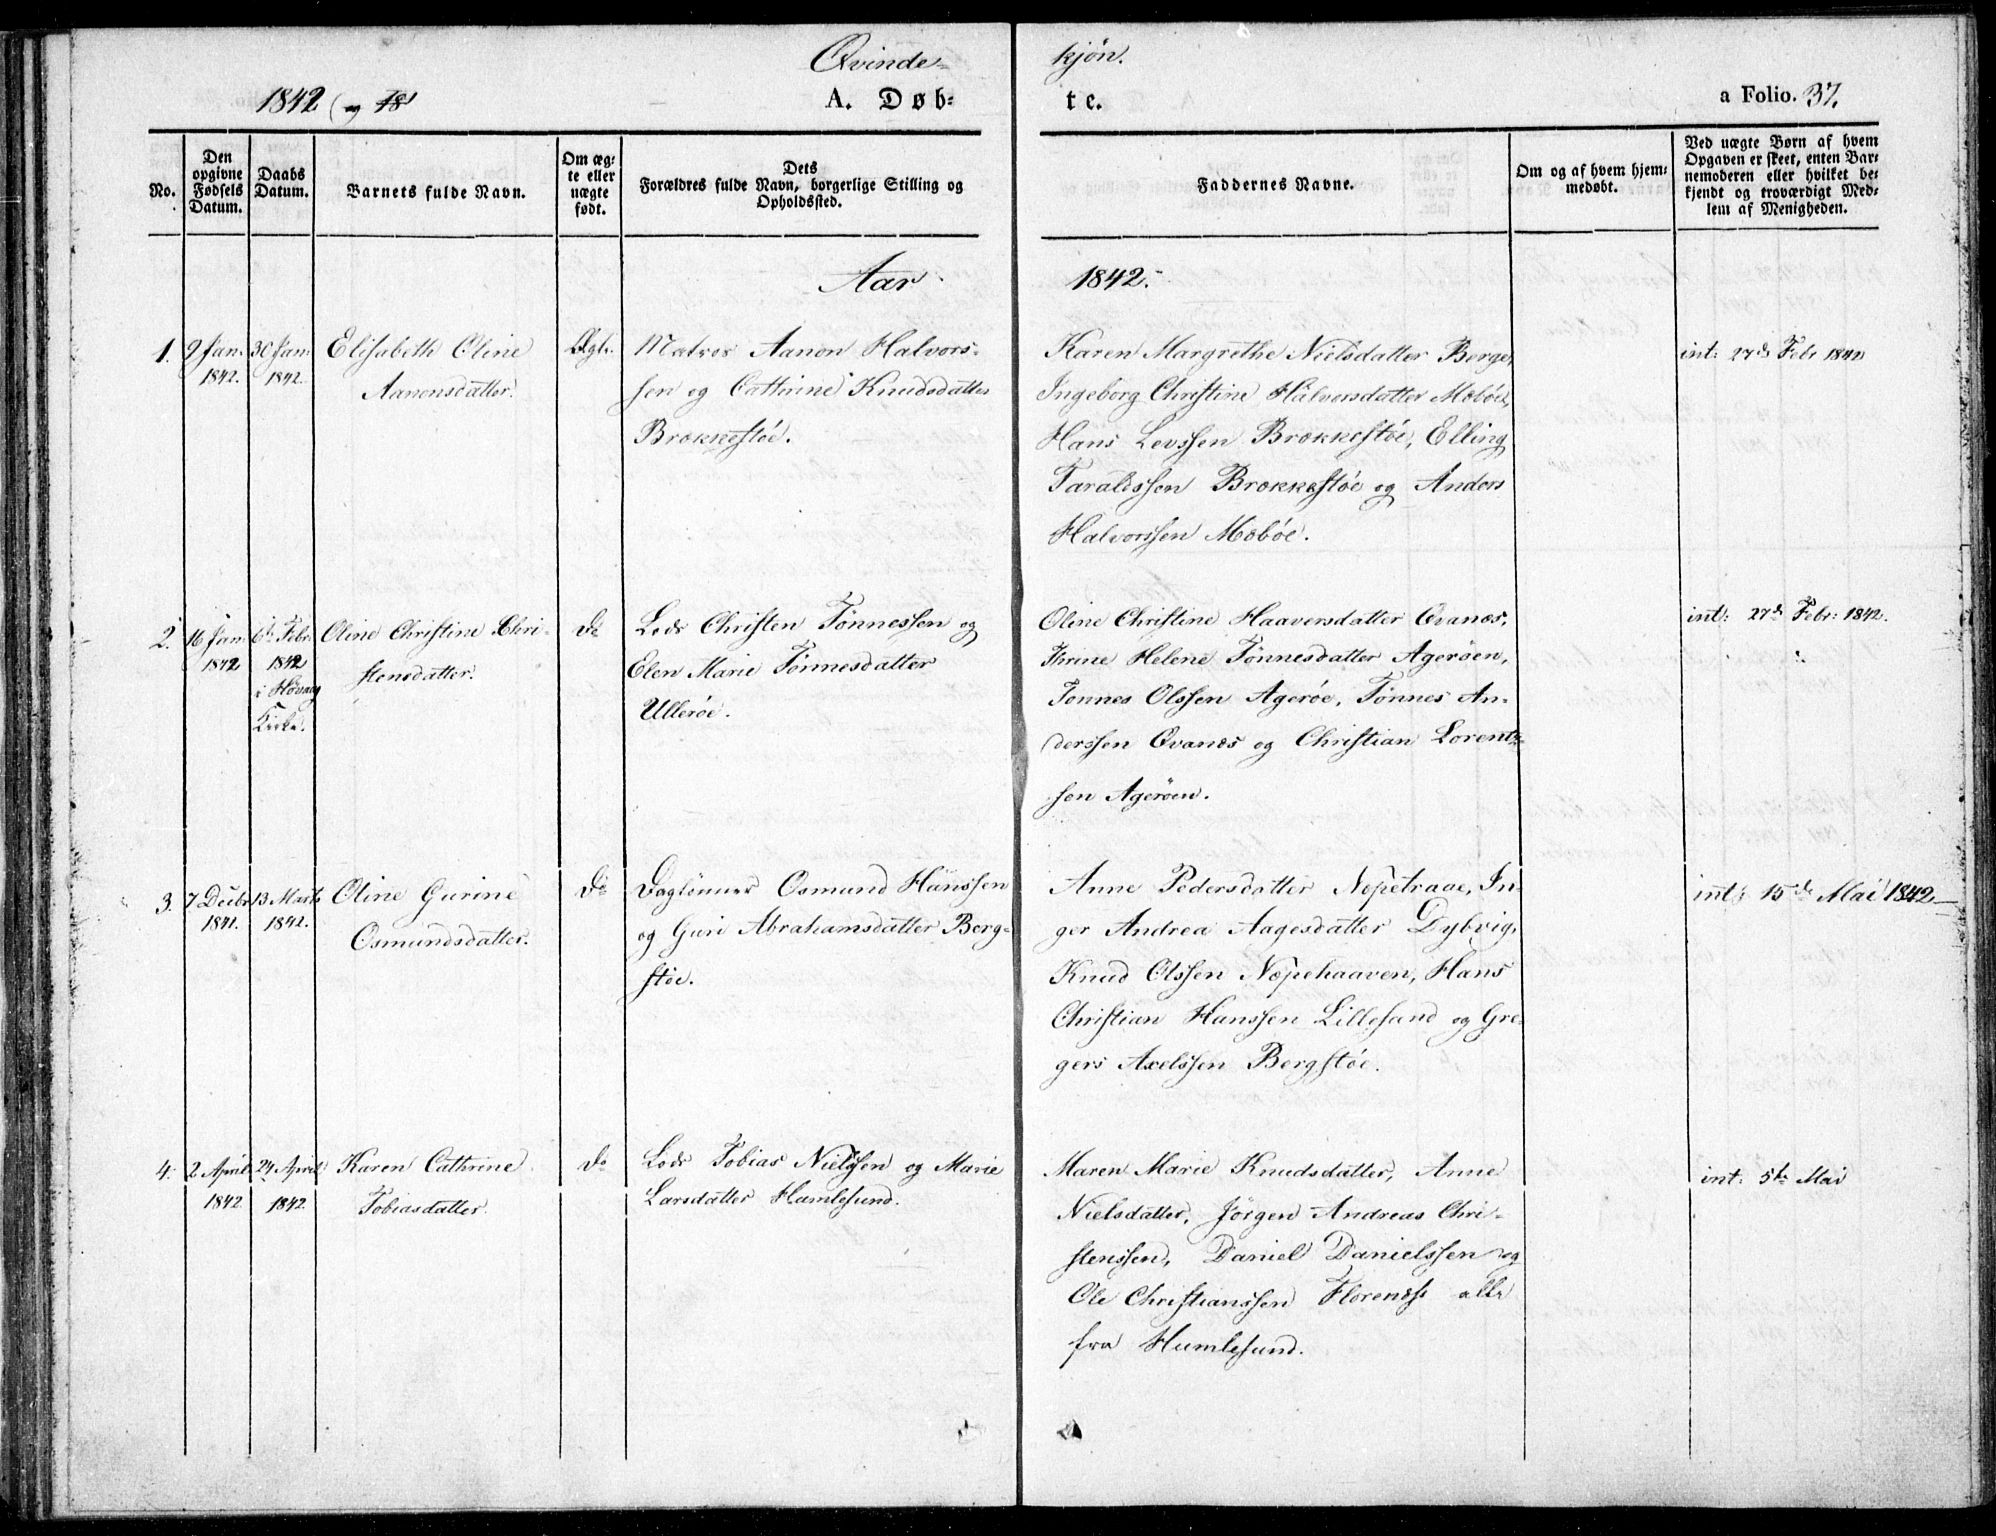 Qvinde-
kjøn.
1842 (og 18
A. Døb-
te.
a Folio. 37.
No.
Den
opgivne
Fødsels
Datum.
Daabs
Datum.
Barnets fulde Navn.
Om æg-
te eller
uægte
født.
Dets
Forældres fulde Navn, borgerlige Stilling og
Opholdssted.
Faddernes Navne.
Om og af hvem hjem-
medøbt.
Ved uægte Børn af hvem
Opgaven er skeet, enten Bar-
nemoderen eller hvilket be-
kjendt og troværdigt Med-
lem af Menigheden.
Aar
1842.
1.
9 Jan.
1842.
30 Jan.
1842.
Elisabeth Oline
Aanonsdatter.
Ægte.
Matros Aanon Halvors-
sen og Cathrine Knudsdatter
Brækkestøe.
Karen Margrethe Nielsdatter Berge,
Ingeborg Christine Halvorsdatter Mebøe,
Hans Levssen Brækkestøe, Elling
Taraldssen Brækkestøe og Anders
Halvorssen Mebøe.
int: 27de Febr 1842
2.
16 Jan:
1842
6te Febr.
1842
i Høvaag
Kirke.
Oline Christine Chri-
stensdatter.
do
Lods Christen Tønnessen og
Elen Marie Tønnesdatter
Ullerøe.
Oline Christine Haaversdatter Qvanes,
Thrine Helene Tønnesdatter Agerøen,
Tønnes Olssen Agerøe, Tønnes An-
derssen Qvanes og Christian Lorent-
sen Agerøen.
int: 27de Febr: 1842.
3.
7 Decbr
1841.
13 Marts
1842.
Oline Gurine
Osmundsdatter.
do
Daglønner Osmund Hanssen
og Guri Abrahamsdatter Berg-
støe.
Anne Pedersdatter Nepetraae, In-
ger Andrea Aagesdatter Dybvig,
Knud Olssen Næpehaaven, Hans
Christian Hanssen Lillesand og Gre-
gers Axelssen Bergstøe.
int: 15de Mai 1842
4.
2 April
1842
24 April
1842
Karen Cathrine
Tobiasdatter.
do
Lods Tobias Nielssen og Marie
Larsdatter Humlesund.
Maren Marie Knudsdatter, Anne
Nielsdatter, Jörgen Andreas Chri-
stenssen, Daniel Danielssen og
Ole Christianssen Florenæs alle
fra Humlesund.
int: 5te Mai